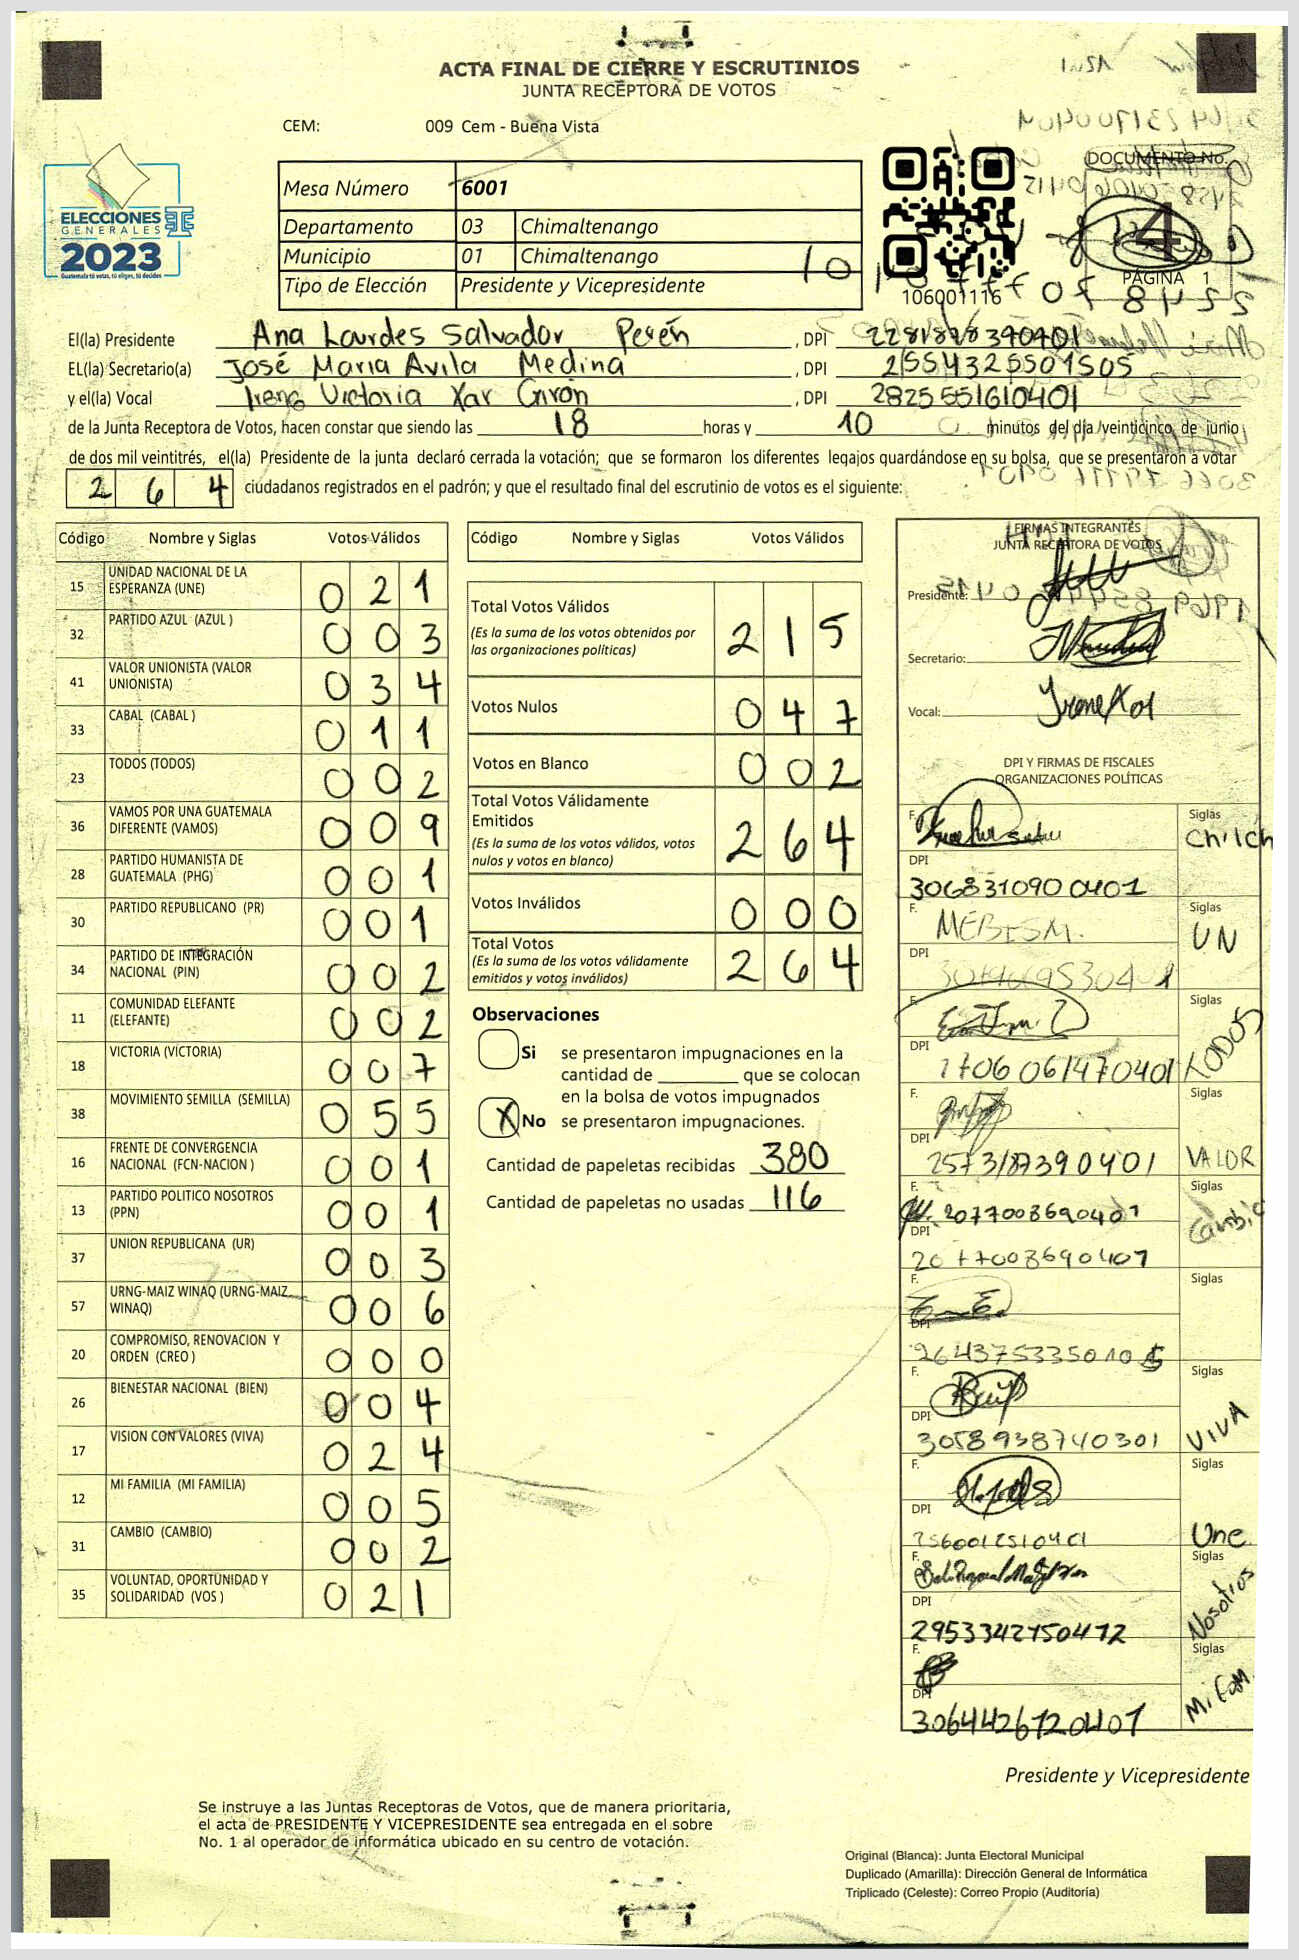 ACTA FINAL DE CIERRE Y ESCRUTINIOS
JUNTA RECEPTORA DE VOTOS
CEM: 009 Cem - Buena Vista
ELECCIONES
GENERALES
2023
Guatemala tú votas, tú eliges, tú decides
Mesa Número 6001
Departamento 03 Chimaltenango
Municipio 01 Chimaltenango
Tipo de Elección Presidente y Vicepresidente
106001116
DOCUMENTO No.
4
PÁGINA 1
El(la) Presidente Ana Lourdes Salvador Perén , DPI
EL(la) Secretario(a) José Maria Avila Medina , DPI 2554325501505
y el(la) Vocal Irene Victoria Xar Girón , DPI 2825551610401
de la Junta Receptora de Votos, hacen constar que siendo las 18 horas y 10 minutos del día veinticinco de junio
de dos mil veintitrés, el(la) Presidente de la junta declaró cerrada la votación; que se formaron los diferentes legajos guardándose en su bolsa, que se presentaron a votar
2 6 4 ciudadanos registrados en el padrón; y que el resultado final del escrutinio de votos es el siguiente:
Código Nombre y Siglas Votos Válidos
15 UNIDAD NACIONAL DE LA ESPERANZA (UNE) 0 2 1
32 PARTIDO AZUL (AZUL ) 0 0 3
41 VALOR UNIONISTA (VALOR UNIONISTA) 0 3 4
33 CABAL (CABAL ) 0 1 1
23 TODOS (TODOS) 0 0 2
36 VAMOS POR UNA GUATEMALA DIFERENTE (VAMOS) 0 0 9
28 PARTIDO HUMANISTA DE GUATEMALA (PHG) 0 0 1
30 PARTIDO REPUBLICANO (PR) 0 0 1
34 PARTIDO DE INTEGRACIÓN NACIONAL (PIN) 0 0 2
11 COMUNIDAD ELEFANTE (ELEFANTE) 0 0 2
18 VICTORIA (VICTORIA) 0 0 7
38 MOVIMIENTO SEMILLA (SEMILLA) 0 5 5
16 FRENTE DE CONVERGENCIA NACIONAL (FCN-NACION ) 0 0 1
13 PARTIDO POLITICO NOSOTROS (PPN) 0 0 1
37 UNION REPUBLICANA (UR) 0 0 3
57 URNG-MAIZ WINAQ (URNG-MAIZ WINAQ) 0 0 6
20 COMPROMISO, RENOVACION Y ORDEN (CREO ) 0 0 0
26 BIENESTAR NACIONAL (BIEN) 0 0 4
17 VISION CON VALORES (VIVA) 0 2 4
12 MI FAMILIA (MI FAMILIA) 0 0 5
31 CAMBIO (CAMBIO) 0 0 2
35 VOLUNTAD, OPORTUNIDAD Y SOLIDARIDAD (VOS ) 0 2 1
Código Nombre y Siglas Votos Válidos
Total Votos Válidos 2 1 5
(Es la suma de los votos obtenidos por
las organizaciones políticas)
Votos Nulos 0 4 7
Votos en Blanco 0 0 2
Total Votos Válidamente
Emitidos 2 6 4
(Es la suma de los votos válidos, votos
nulos y votos en blanco)
Votos Inválidos 0 0 0
Total Votos 2 6 4
(Es la suma de los votos válidamente
emitidos y votos inválidos)
Observaciones
Si se presentaron impugnaciones en la
cantidad de ________ que se colocan
en la bolsa de votos impugnados
X No se presentaron impugnaciones.
Cantidad de papeletas recibidas 380
Cantidad de papeletas no usadas 116
FIRMAS INTEGRANTES
JUNTA RECEPTORA DE VOTOS
Presidente:
Secretario:
Vocal: Irene Xar
DPI Y FIRMAS DE FISCALES
ORGANIZACIONES POLÍTICAS
F. Siglas
DPI
3068310900401
F. Siglas UN
DPI
F. Siglas TODOS
DPI
1706061470401
F. Siglas VALOR
DPI
2573187390401
F. 2077008690401 Siglas Cambio
DPI
2077008690401
F. Siglas
DPI
F. Siglas VIVA
DPI
3058938740301
F. Siglas Une
DPI
F. Siglas Nosotros
DPI
2953342150412
F. Siglas Mi Fam.
DPI
3064426720401
Presidente y Vicepresidente
Se instruye a las Juntas Receptoras de Votos, que de manera prioritaria,
el acta de PRESIDENTE Y VICEPRESIDENTE sea entregada en el sobre
No. 1 al operador de informática ubicado en su centro de votación.
Original (Blanca): Junta Electoral Municipal
Duplicado (Amarilla): Dirección General de Informática
Triplicado (Celeste): Correo Propio (Auditoría)